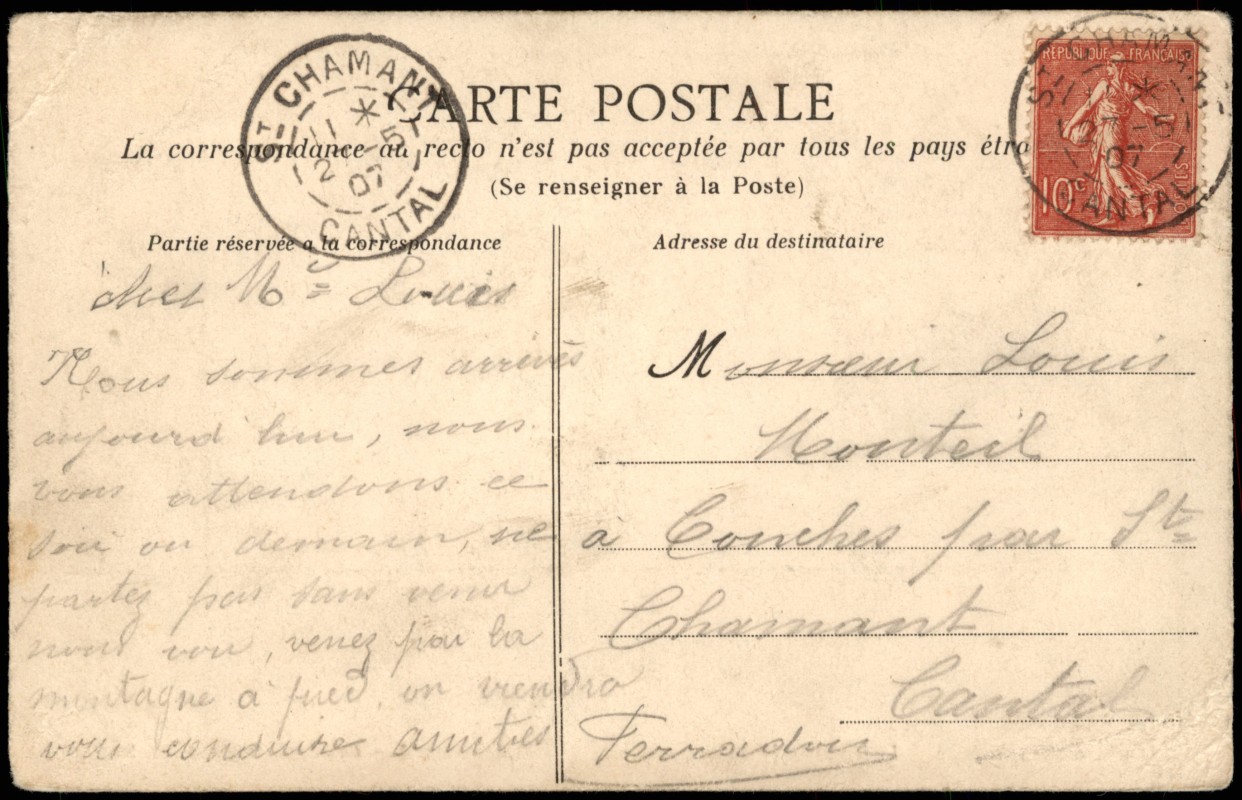 CARTE POSTALE
La correspondance au recto n'est pas acceptée par tous les pays étra
(Se renseigner à la Poste)
ST CHAMANT
11 *
2 - 5
07
CANTAL
REPUBLIQUE FRANÇAISE
10c
POSTES
ST CHAMANT
*
7-5
07
CANTAL
Partie réservée a la correspondance
chez M= Louis
Nous sommes arrivés
aujourd hui, nous
vous attendons ce
soir ou demain, ne
partez pas sans venir
nous voir, venez par la
montagne à pied on viendra
vous conduire
Terradou
Adresse du destinataire
Monsieur Louis
Monteil
à Couches par Ste
Chamant
Cantal